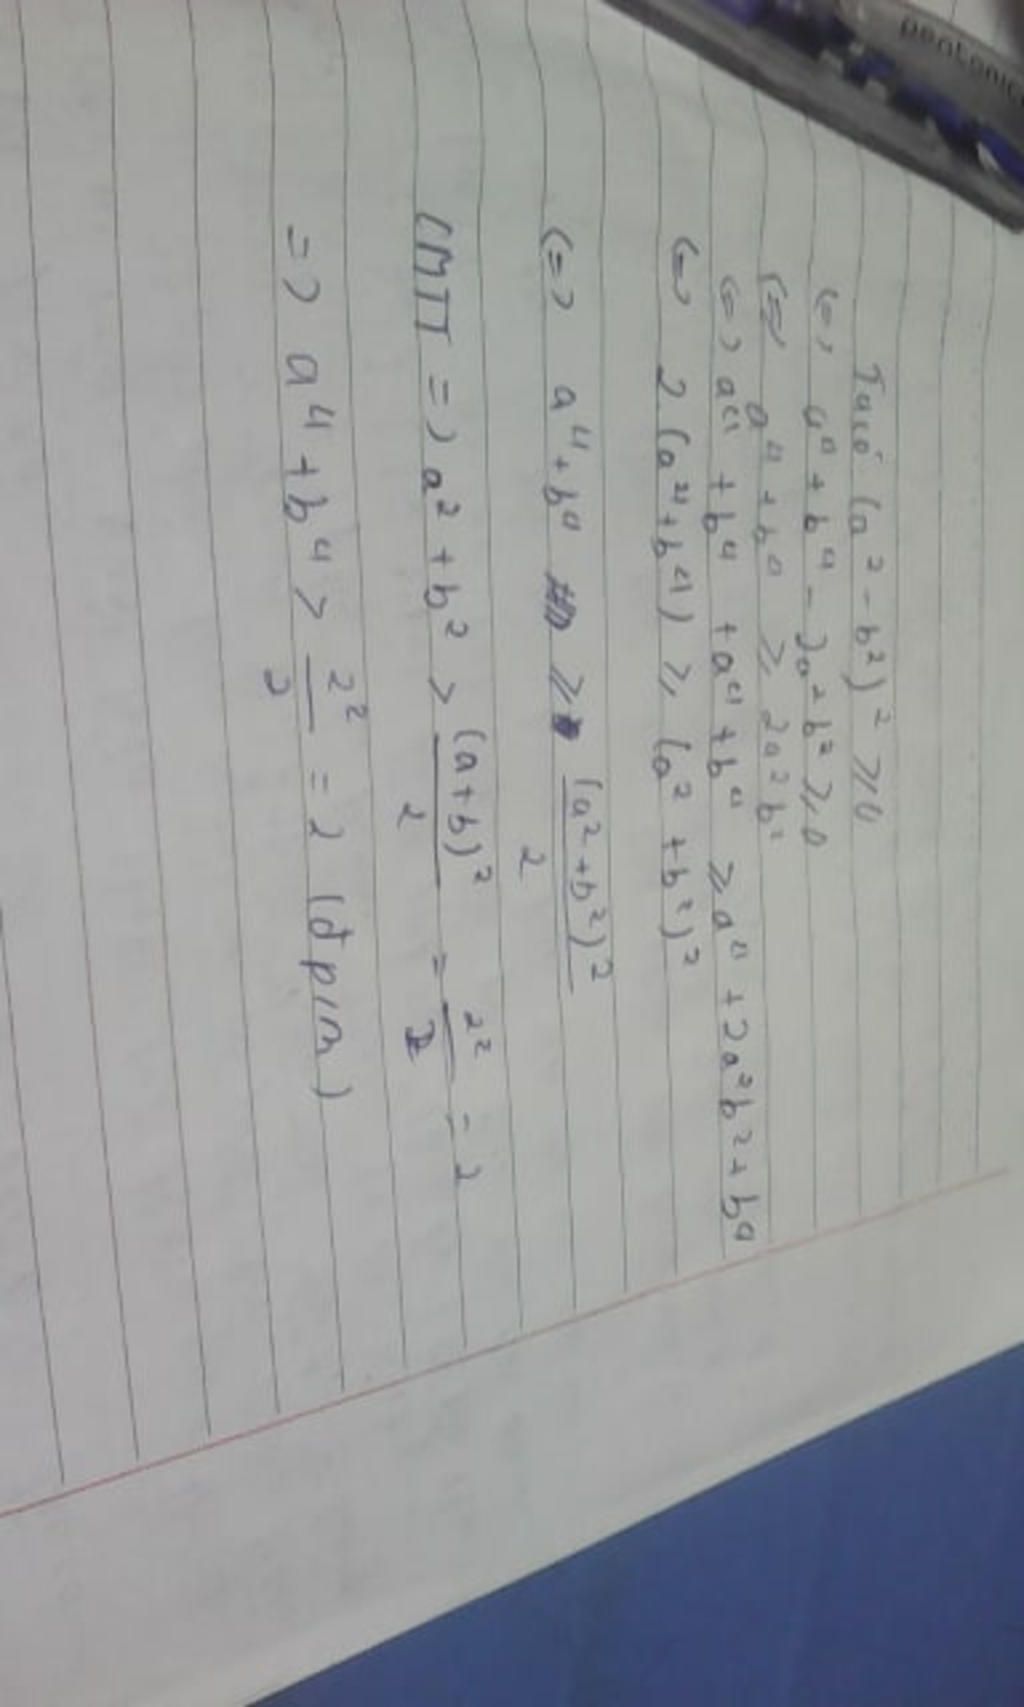 pentonic
Ta có (a² - b²)² ≥ 0
<=> a⁴ + b⁴ - 2a²b² ≥ 0
<=> a⁴ + b⁴ ≥ 2a²b²
<=> a⁴ + b⁴ + a⁴ + b⁴ ≥ a⁴ + 2a²b² + b⁴
<=> 2(a⁴ + b⁴) ≥ (a² + b²)²
<=> a⁴ + b⁴ ≥ (a² + b²)²/2
CMTT => a² + b² > (a+b)²/2 = 2²/2 = 2
=> a⁴ + b⁴ > 2²/2 = 2 (đpcm)